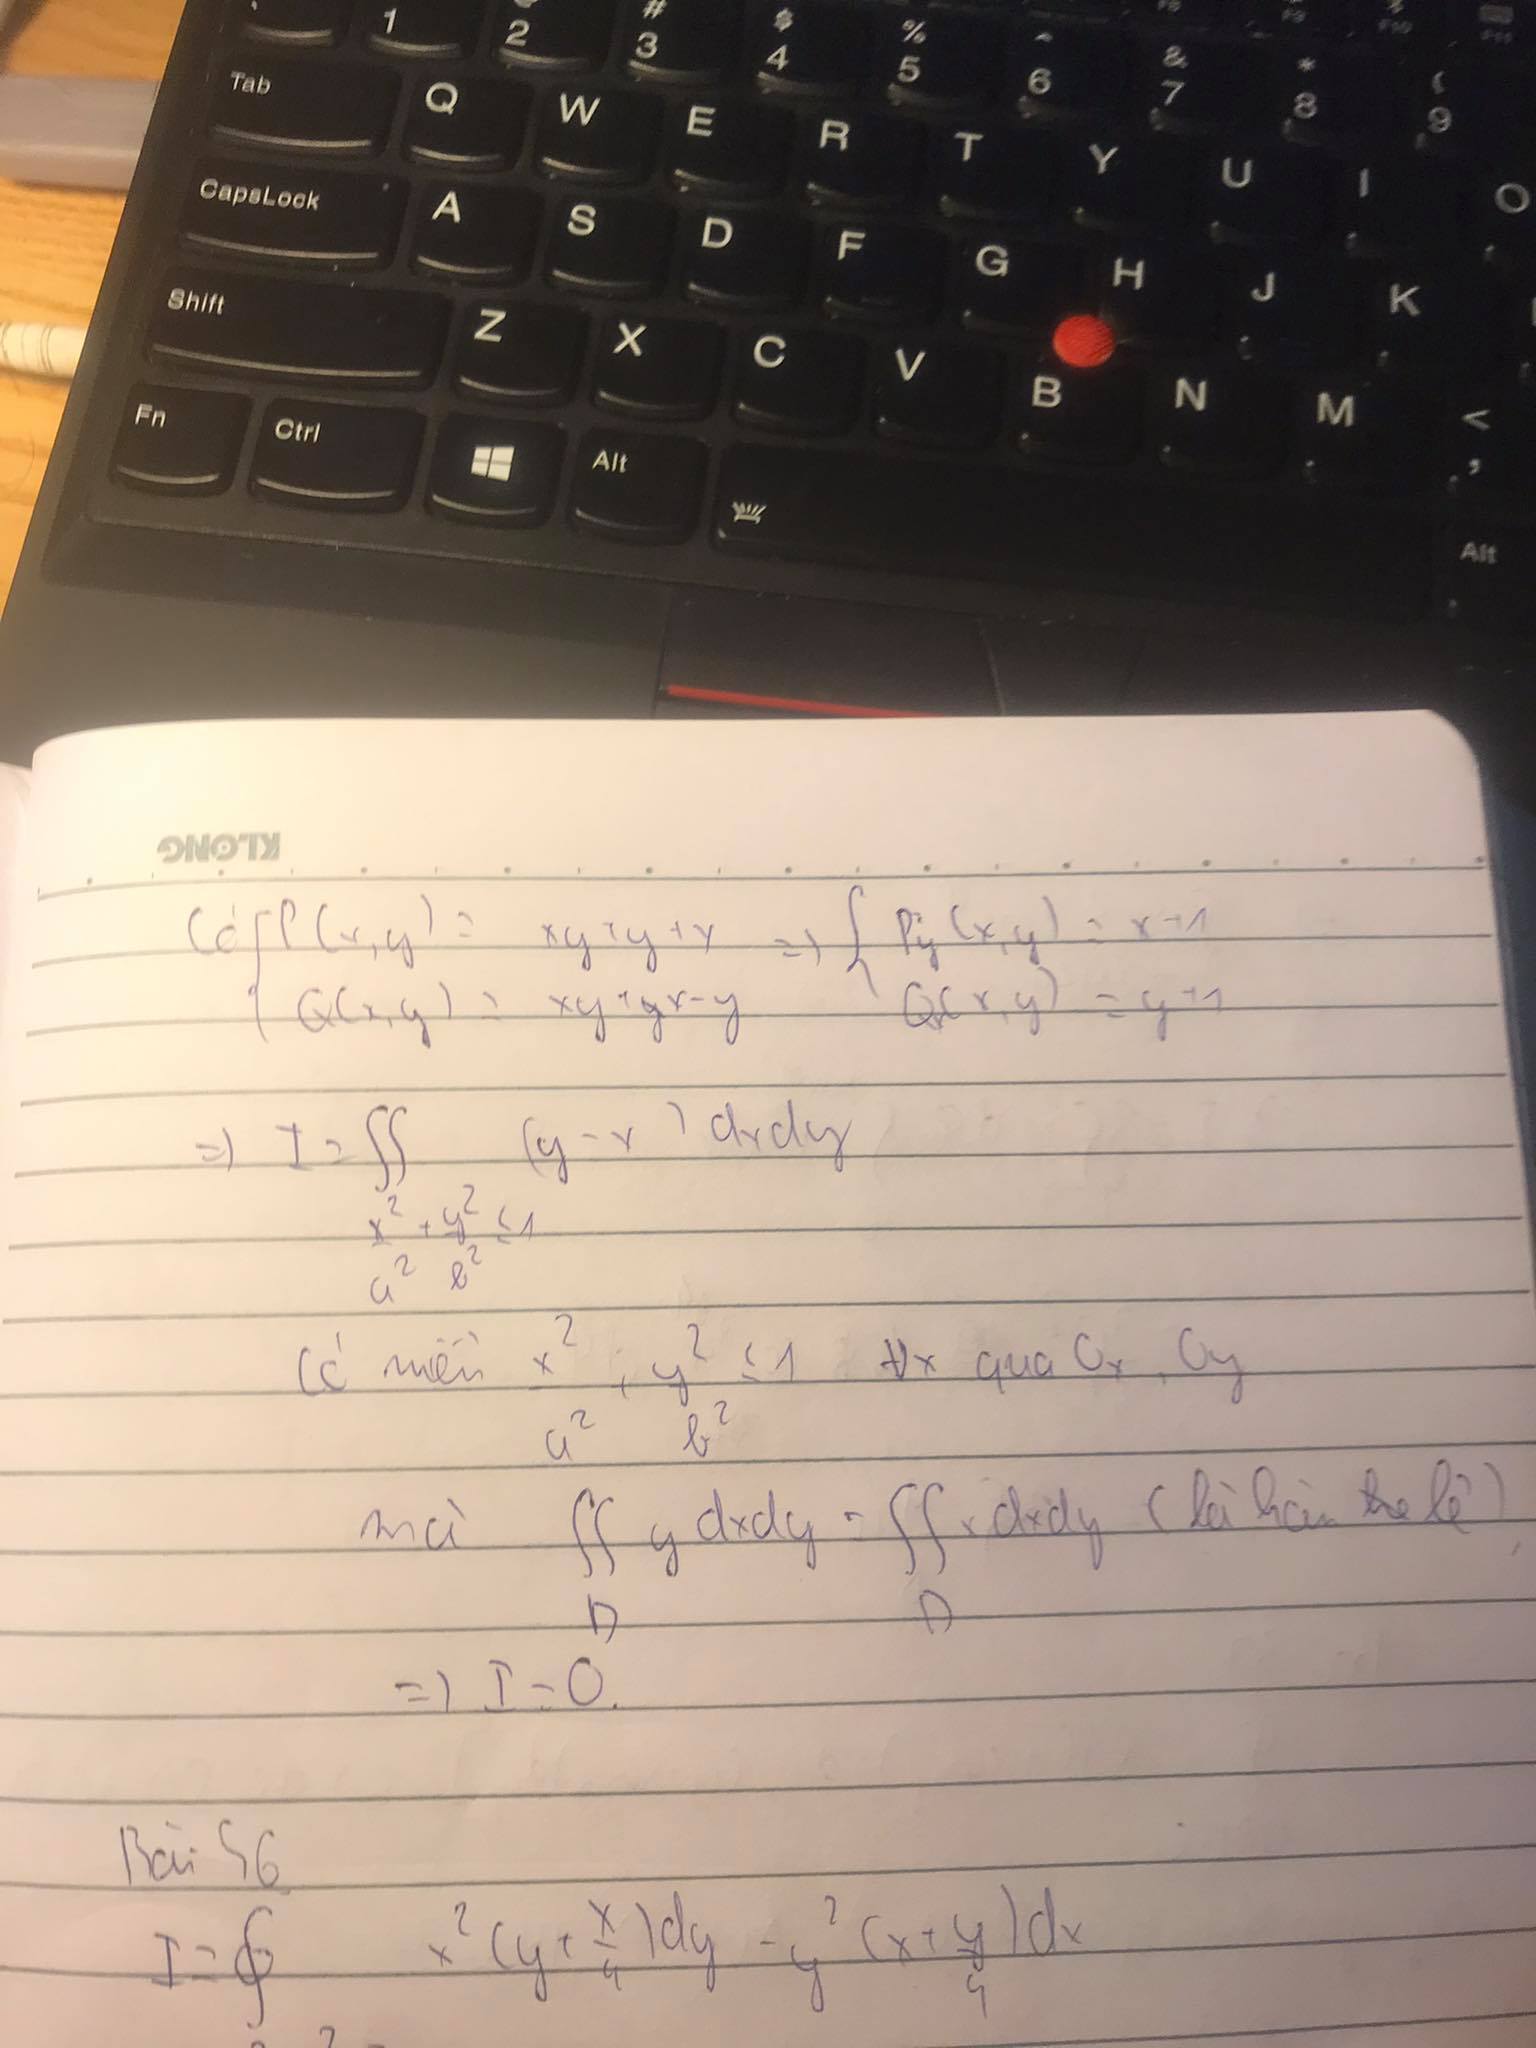 1 2 # 3 $ 4 % 5 6 & 7 * 8 ( 9
Tab Q W E R T Y U I O
CapsLock A S D F G H J K
Shift Z X C V B N M < ,
Fn Ctrl Alt Alt
KLONG
Có { P(x,y) = xy+y+x => { P'y (x,y) = x+1
Q(x,y) = xy+x-y Q'x(x,y) = y+1
=> I = ∬ (y-x) dxdy
x²/a² + y²/b² ≤ 1
Có miền x²/a² + y²/b² ≤ 1 đx qua Ox, Oy
mà ∬ y dxdy = ∬ x dxdy (là hàm lẻ)
D D
=> I = 0.
Bài 46
I = ∮ x² (y + x/4) dy - y² (x + y/4) dx